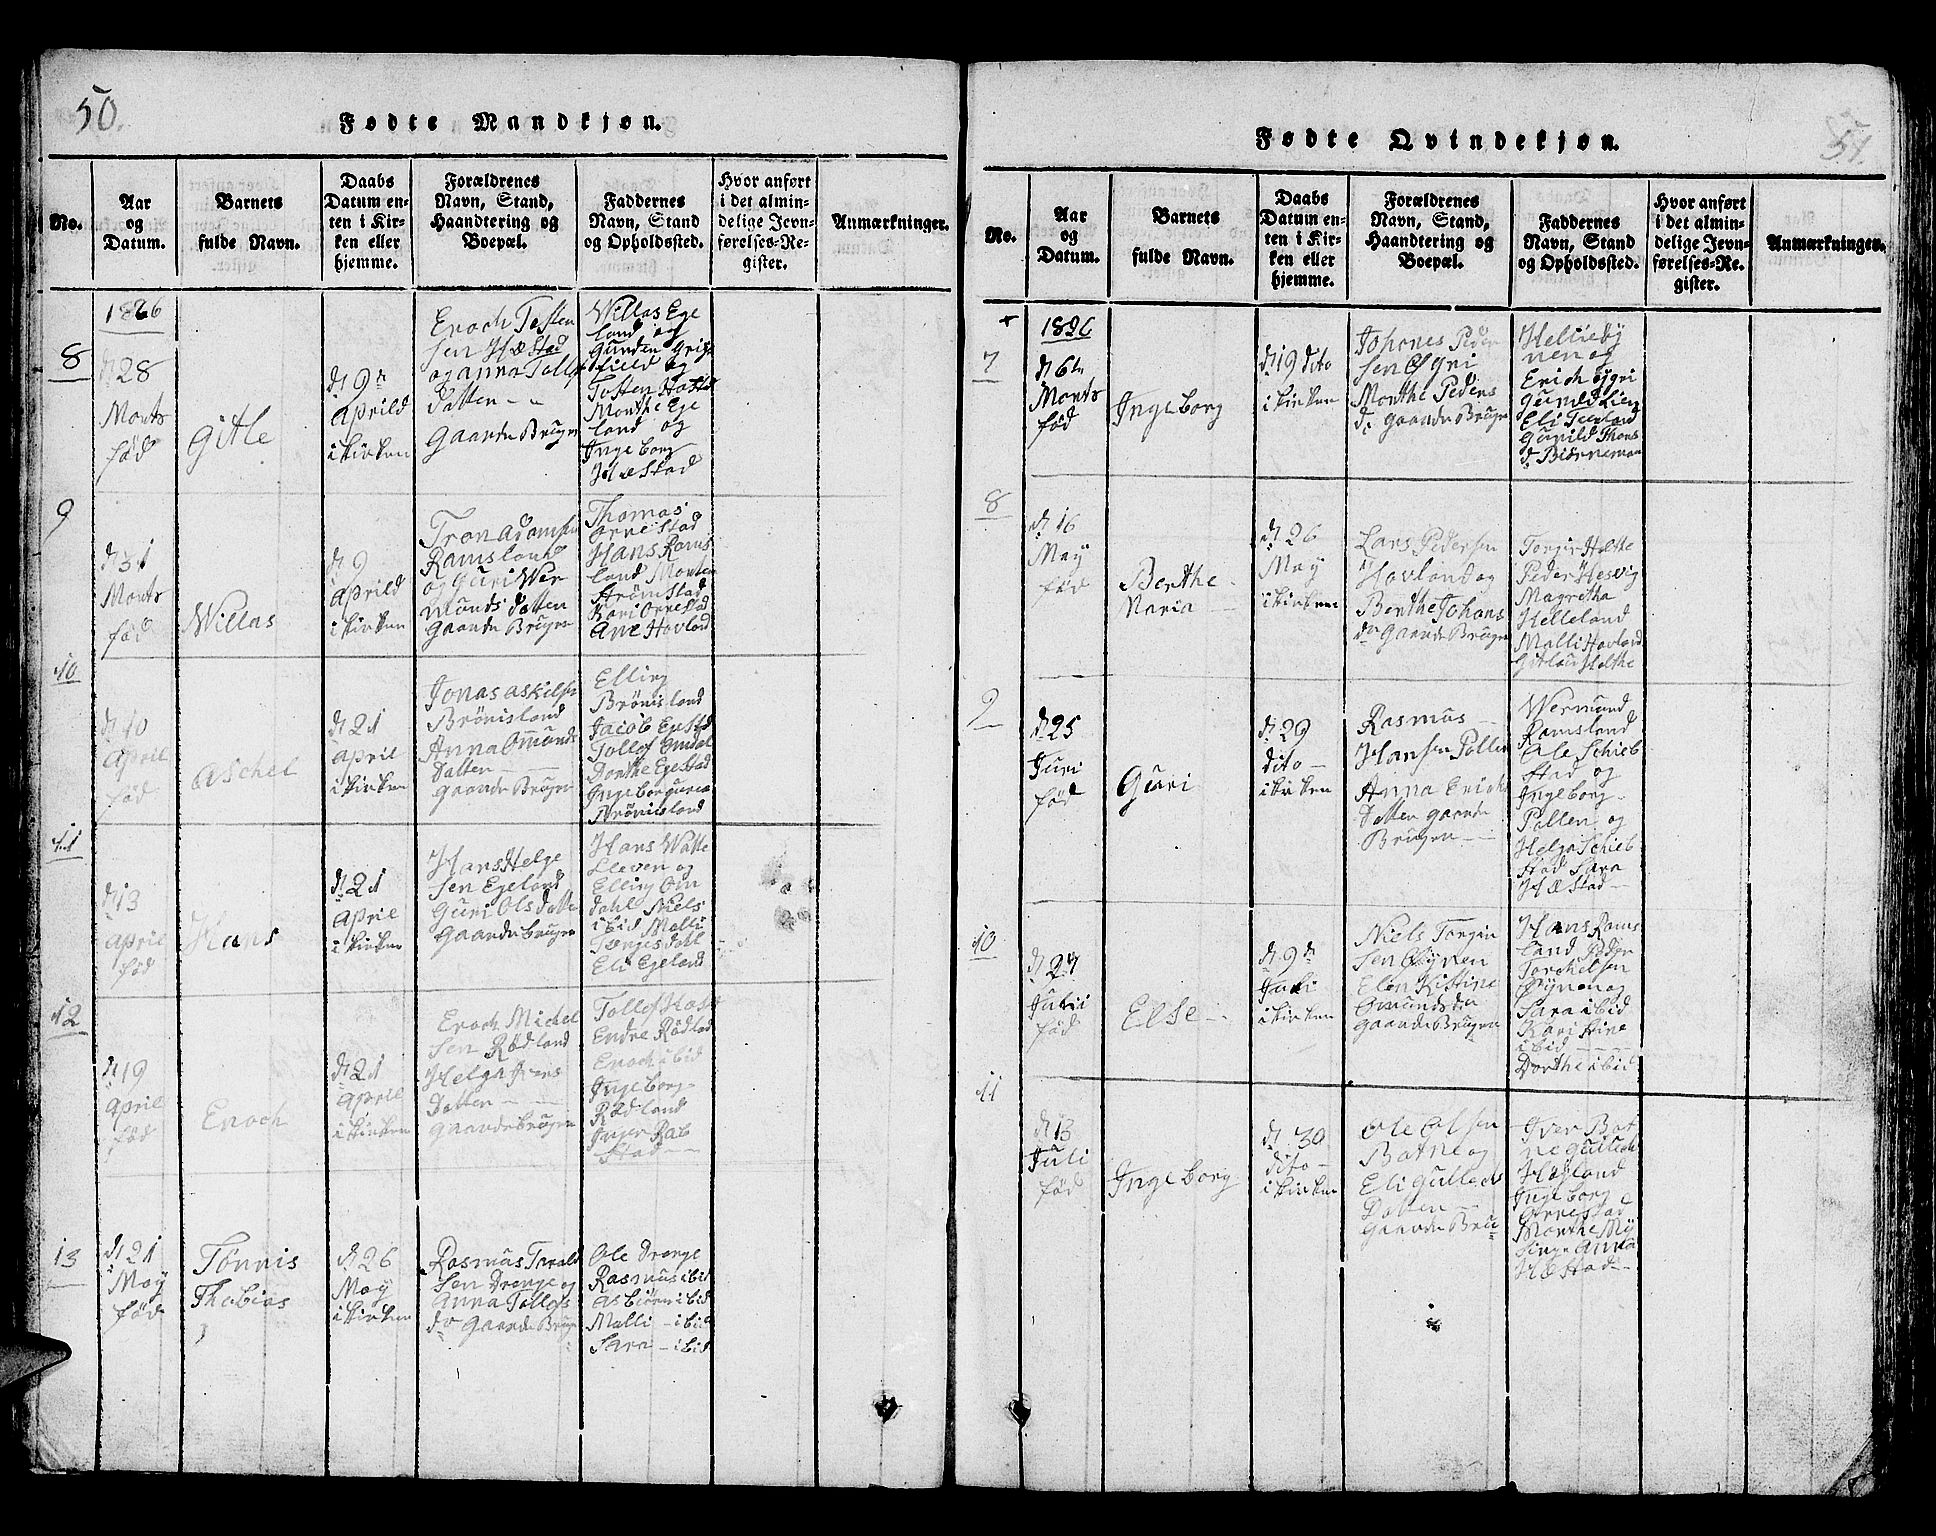 50.
Fødte Mandkjøn.
No.
Aar
og
Datum.
Barnets
fulde Navn.
Daabs
Datum en-
ten i Kir-
ken eller
hjemme.
Forældrenes
Navn, Stand,
Haandtering og
Boepæl.
Faddernes
Navn, Stand
og Opholdssted.
Hvor anført
i det almin-
delige Jevn-
førelses-Re-
gister.
Anmærkninger.
1826
8
d 28
Monts
fød
Gitle
d 9n
aprild
i kirken
Enoch Tosten
sen Hæstad
og anna Tollof
Datten
Gaarde Bruger
Willas Ege
land og
Gunder
og
Totten
Monthe Ege
land og
Ingeborg
Hæstad
9
d 31
Monts
fød
Willas
d 9
aprild
i kirken
Tron adamsen
Ramsland
og Guri Wer
munds datten
Gaarde Bruger
Thomas
ornestad
Hans Rams
land Morten
Arømstad
Kari Ornestad
Ane Hovland
10
d 10
April
fød
Aschel
d 21
april
i kirken
Jonas askilsen
Brönisland
Anna Omunds
Datten
gaarde Bruger
Elling
Brönisland
Jacob
Tollof Omdal
Dorthe Egestad
Ingeborg
Brönisland
11
d 13
april
fød
Hans
d 21
april
i kirken
Hans Helge
sen Egeland
Guri Olsdatte
Gaarde bruger
Hans Watte
Lleven og
Elling Om
dahl Niels
ibid Malli
Tonges dahl
Eli Egeland
12
d 19
april
fød
Enoch
d 21
april
i kirken
Enoch Michel
sen Rødland
Helga Ivers
Datten
gaarde bruger
Tollof
Endre Rødland
Enoch ibid
Ingeborg
Rødland
Inger Rab
stad
13
d 21
May
fød
Tønnis
Thobias
d 26
May
i kirken
Rasmus Tarald
sen Drange og
Anna Tollofs
dr gaarde Bruger
Ole Drange
Rasmus ibid
Asbiörn ibid
Malli - ibid
Sara - ibid
51.
Fødte Qvindekjøn.
No.
Aar
og
Datum.
Barnets
fulde Navn.
Daabs
Datum en-
ten i Kir-
ken eller
hjemme.
Forældrenes
Navn, Stand,
Haandtering og
Boepæl.
Faddernes
Navn, Stand
og Opholdssted.
Hvor anført
i det almin-
delige Jevn-
førelses-Re-
gister.
Anmærkninger.
1826
7
d 6te
Monts
fød
Ingeborg
d 19 dito
i kirken
Johanes Peder
sen Eygri
Monthe Peders
dr gaarde Bruger
nen og
Erich Eygri
Gunild Lien
Eli
Gunild Thors
dr Biørneman
8
d 16
May
fød
Berthe
Maria
d 26
May
i kirken
Lars Pedersen
Hovland og
Berthe Johans
dr Gaarde Bruger
Torgir Helthe
Peder Hesvig
Magretha
Helleland
Malli Hovland
Helthe
9
d 25
Juri
fød
Guri
d 29
dito
i kirken
Rasmus
Hansen Pollen
Anna Erichs
Datten gaarde
Bruger
Wermund
Ramsland
Ole Schieb
stad og
Ingeborg
Pollen og
Helga Schieb
stad Sara
Hæstad
10
d 27
Julii
fød
Else
d 9de
Juli
i kirken
Niels Torger
sen Øynen
Elen Kistine
Omundsdr
gaarde Bruger
Hans Rams
land Peder
Torchelsen
Øynen og
Sara ibid
Kari
ibid
Dorthe ibid
11
d 13
Juli
fød
Ingeborg
d 30
dito
i kirken
Ole Olsen
Botne og
Eli Gullechs
Datten
Gaarde Bru
Iver Bot
ne Gullech
Høyland
Ingeborg
Ornestad
Monthe My
singe Anna
Hæstad